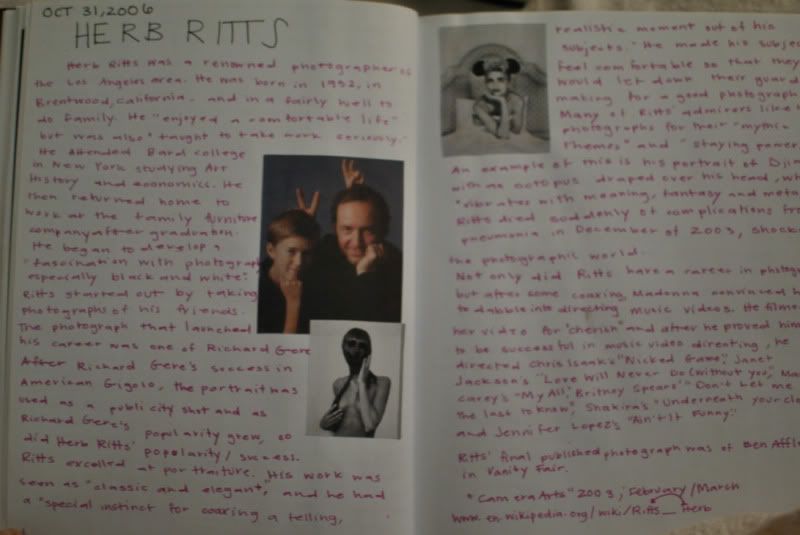 OCT 31, 2006
HERB RITTS
Herb Ritts was a renowned photographer of
the Los Angeles area. He was born in 1952, in
Brentwood, California. and in a fairly well to
do family. He "enjoyed a comfortable life"
but was also "taught to take work seriously."
He attended Bard college
in New York studying Art
History and economics. He
then returned home to
work at the family furniture
company after graduation.
He began to develop a
"fascination with photography
especially black and white."
Ritts started out by taking
photographs of his friends.
The photograph that launched
his career was one of Richard Gere
After Richard Gere's success in
American Gigolo, the portrait was
used as a publicity shot and as
Richard Gere's popularity grew, so
did Herb Ritts' popularity/success.
Ritts excelled at portraiture. His work was
seen as "classic and elegant", and he had
a "special instinct for coaxing a telling,
realistic moment out of his
subjects." He made his subjec
feel comfortable so that they
would let down their guard
making for a good photograph
Many of Ritts' admirers like
photographs for their "mythic
themes" and "staying power
An example of this is his portrait of Djim
with an octopus draped over his head, wh
"vibrates with meaning, fantasy and meta
Ritts died suddenly of complications from
pneumonia in December of 2003, shock
the photographic world.
Not only did Ritts have a career in photog
but after some coaxing, Madonna convinced h
to dabble into directing music videos. He filme
her video for "cherish" and after he proved him
to be successful in music video directing, he
directed Chris Isaak's "Wicked Game", Janet
Jackson's "Love Will Never Do (without you)," Ma
Carey's "My All," Britney Spears' "Don't Let me
the last to know," Shakira's "Underneath your clo
and Jennifer Lopez's "Ain't It Funny."
Ritts' final published photograph was of Ben Affle
in Vanity Fair.
"Camera Arts" 2003, February/March
www.en.wikipedia.org/wiki/Ritts_Herb